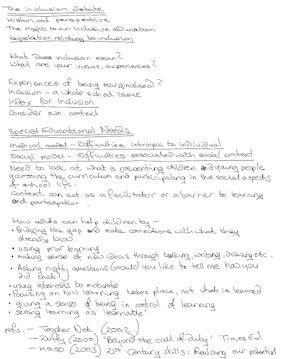 The inclusion debate
Historical perspective
The right to an inclusive education
Legislation relating to inclusion
What does inclusion mean?
What are your views, experiences?
Experiences of being marginalised?
Inclusion - a whole school issue
Index for Inclusion
Consider own context
Special Educational Needs
medical model - Difficulties intrinsic to individual
social model - Difficulties associated with social context
Need to look at what is preventing children and young people
accessing the curriculum and participating in the social aspects
of school life.
Context can act as a facilitator or a barrier to learning
and participation.
How adults can help children by -
• Bridging the gap and make connections with what they
already know
• using prior learning
• making sense of new ideas through talking, writing, drawing etc.
• Asking right questions (would you like to tell me how you
did that?)
• using interests to motivate
• focusing on how learning takes place, not what is learned
• giving a sense of being in control of learning
• seeing learning as 'learnable'
refs. - Teacher Net (2002)
- Duffy (2005) 'Beyond the call of duty' Times Ed.
- HMSO (2003) 21st Century skills: Realising our potential